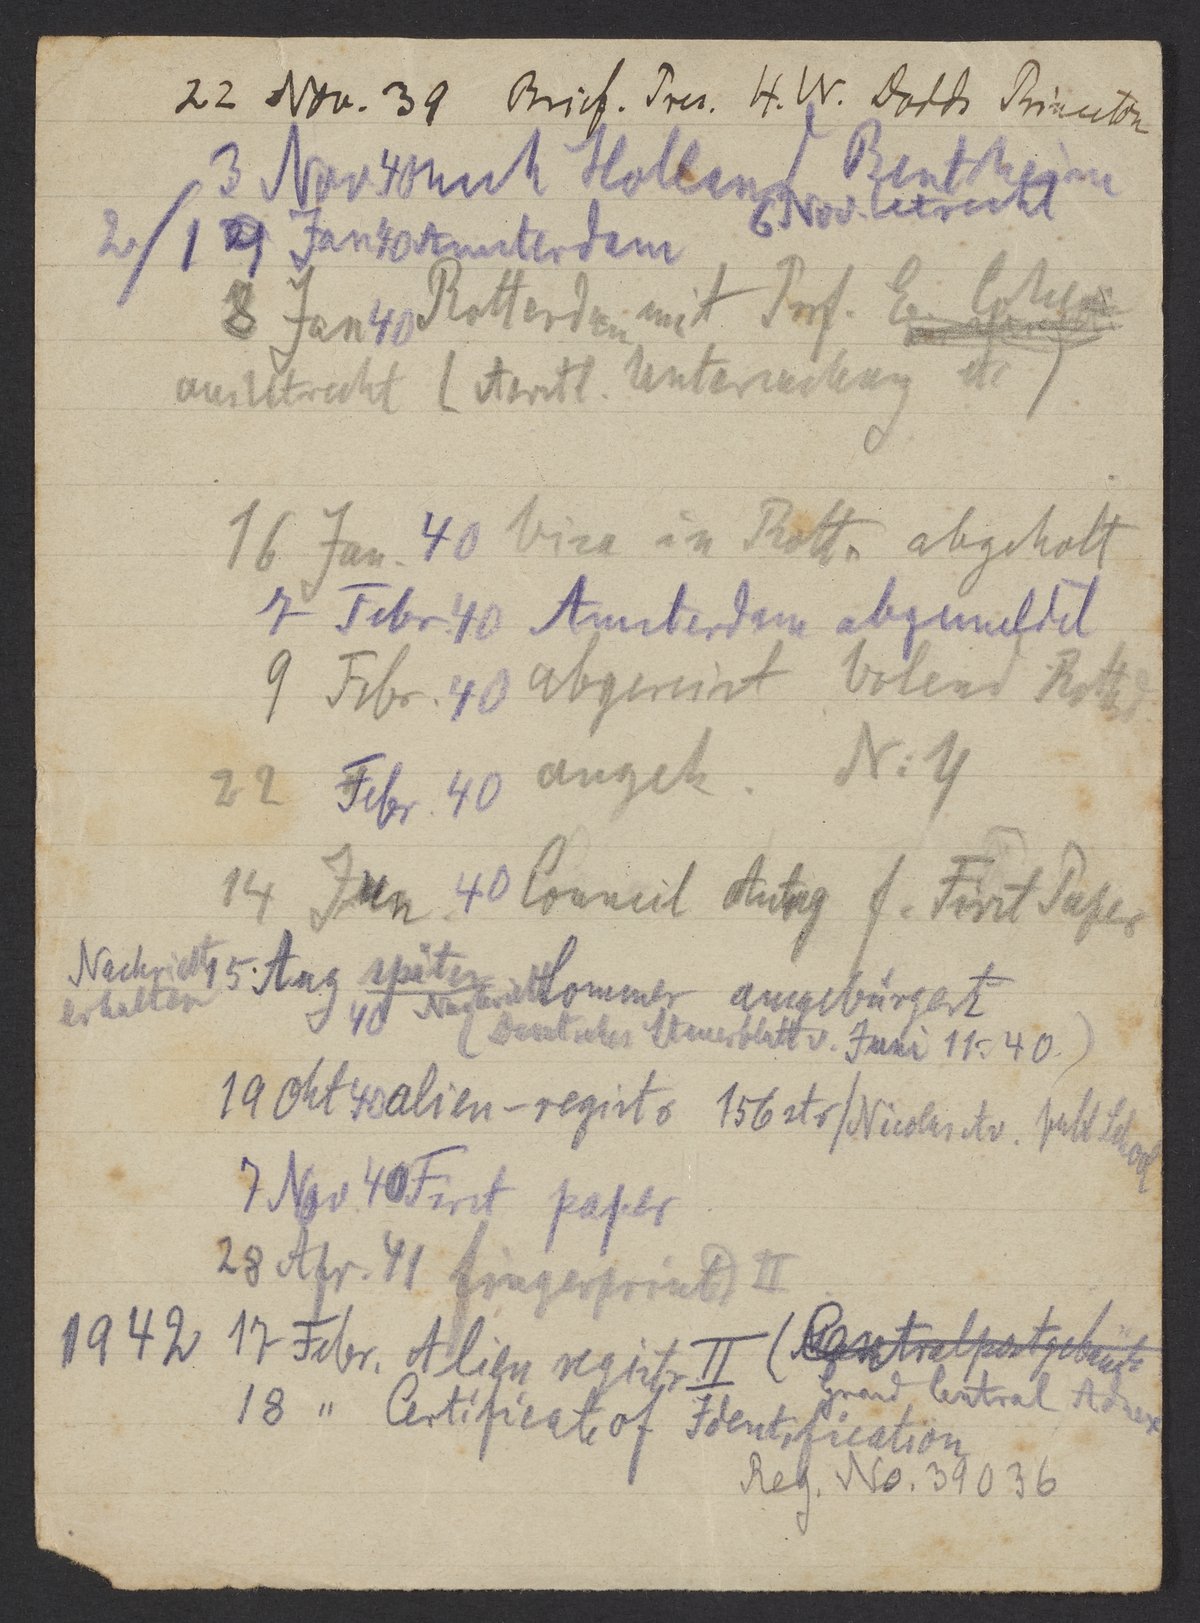 22 Nov. 39 Brief. Pres. H. W. Dodds Princeton
3 Nov 40 nach Holland Bentheim
6 Nov. Utrecht
2/1 Jan 40 Amsterdam
8 Jan 40 Rotterdam mit Prof. E. Cohen
aus Utrecht (Aerztl. Untersuchung etc)
16 Jan. 40 Visa in Rott. abgeholt
7 Febr. 40 Amsterdam abgemeldet
9 Febr. 40 abgereist Volend Rotterd.
22 Febr. 40 angek. N:Y
14 Jun. 40 Council Antrag f. First Paper
Nachricht 15. Aug später Sommer ausgebürgert
erhalten 40 Nachricht (Deutsches Steuerblatt v. Juni 15. 40.)
19 Okt 40 alien-registr 156 str/Nicolas Av. publ School
7 Nov 40 First paper
28 Apr. 41 fingerprint II
1942 17 Febr. Alien registr. II (Centralpostgebäude
Grand Central Annex
18 " Certificate of Identification
Reg. No. 39036